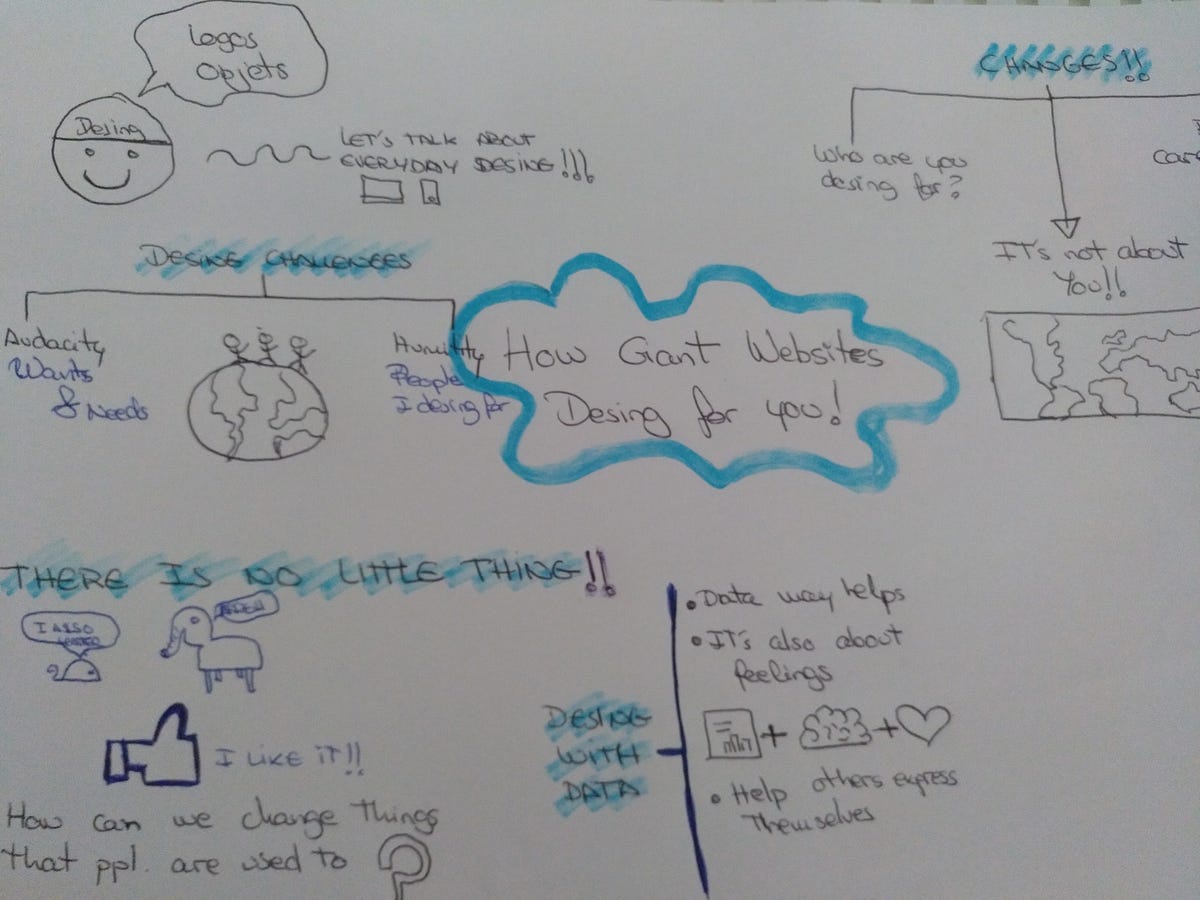 Logos
Objets
Desing
LET'S TALK ABOUT
EVERYDAY DESING!!!
CHANGES!!
Who are you
desing for?
IT's not about
You!!
DESING CHALLENGES
Audacity
Wants
& Needs
Humility
People
I desing for
How Giant Websites
Desing for you!
THERE IS NO LITTLE THING!!
I ALSO
I LIKE IT!!
How can we change Things
that ppl. are used to ?
DESING
WITH
DATA
• Data way helps
• IT's also about
feelings
+ +
• Help others express
Themselves